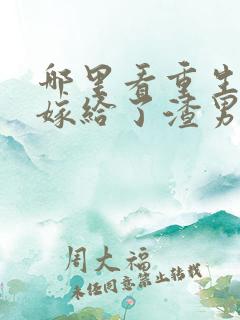 那里看重生
嫁给了渣男
周大福
未经同意禁止转载